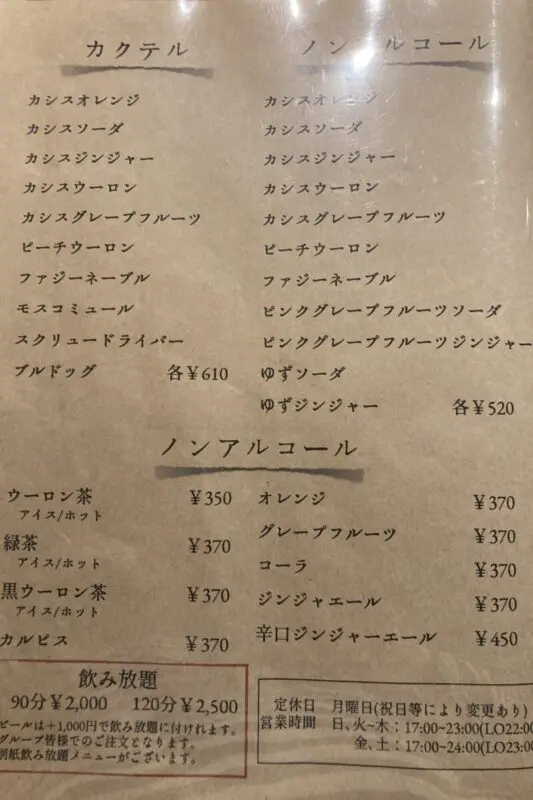 カクテル
カシスオレンジ
カシスソーダ
カシスジンジャー
カシスウーロン
カシスグレープフルーツ
ピーチウーロン
ファジーネーブル
モスコミュール
スクリュードライバー
ブルドッグ 各¥610
ノンアルコール
カシスオレンジ
カシスソーダ
カシスジンジャー
カシスウーロン
カシスグレープフルーツ
ピーチウーロン
ファジーネーブル
ピンクグレープフルーツソーダ
ピンクグレープフルーツジンジャー
ゆずソーダ
ゆずジンジャー 各¥520
ノンアルコール
ウーロン茶 ¥350
アイス/ホット
緑茶 ¥370
アイス/ホット
黒ウーロン茶 ¥370
アイス/ホット
カルピス ¥370
オレンジ ¥370
グレープフルーツ ¥370
コーラ ¥370
ジンジャエール ¥370
辛口ジンジャーエール ¥450
飲み放題
90分¥2,000 120分¥2,500
ビールは+1,000円で飲み放題に付けれます。
グループ皆様でのご注文となります。
別紙飲み放題メニューがございます。
定休日 月曜日(祝日等により変更あり)
営業時間 日、火~木：17:00~23:00(LO22:00
金、土：17:00~24:00(LO23:00